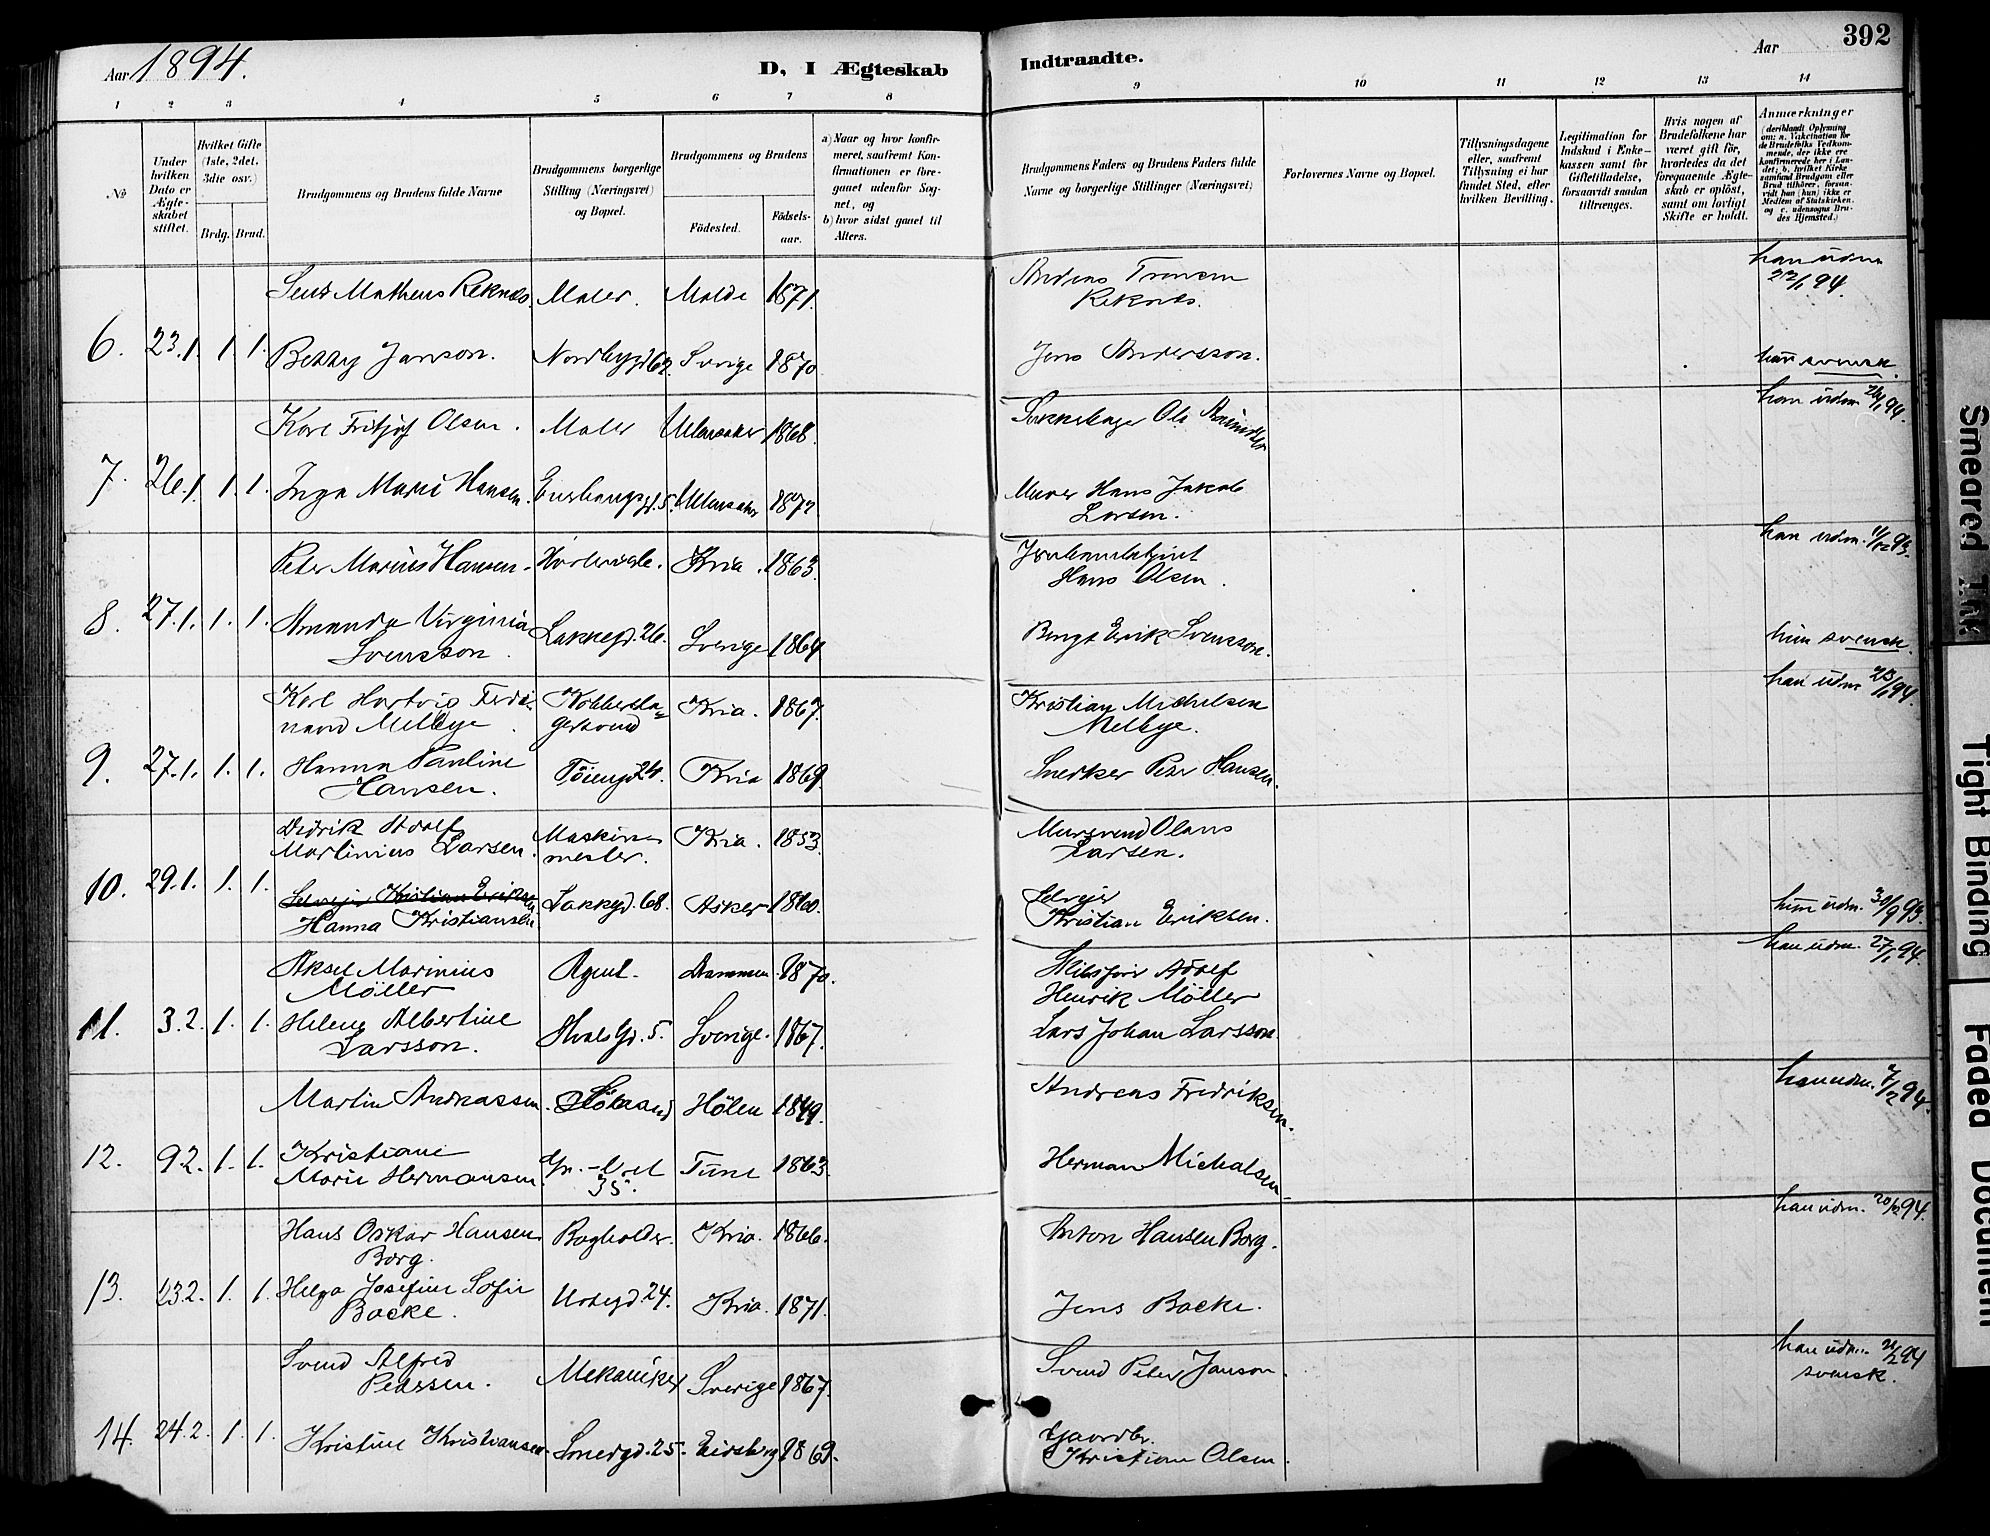 Aar 1894.
D, I Ægteskab
Indtraadte.
Aar
392
1 2 3 4 5 6 7 8 9 10 11 12 13 14
№
Under hvilken Dato er Ægteskabet stiftet.
Hvilket Gifte (1ste, 2det, 3die osv.)
Brdg. Brud.
Brudgommens og Brudens fulde Navne
Brudgommens borgerlige Stilling (Næringsvei) og Bopæl.
Brudgommens og Brudens
Födested.
Födsels-aar.
a) Naar og hvor konfirmeret, saafremt Konfirmationen er foregaaet udenfor Sognet, og
b) hvor sidst gaaet til Alters.
Brudgommens Faders og Brudens Faders fulde Navne og borgerlige Stillinger (Næringsvei)
Forlovernes Navne og Bopæl.
Tillysningsdagene eller, saafremt Tillysning ei har fundet Sted, efter hvilken Bevilling.
Legitimation for Indskud i Enkekassen samt for Giftetilladelse, forsaavidt saadan tiltrænges.
Hvis nogen af Brudefolkene har været gift för, hvorledes da det foregaaende Ægteskab er oplöst, samt om lovligt Skifte er holdt.
Anmærkninger
(deriblandt Oplysning om: a. Vakcination for de Brudefolks Vedkommende, der ikke ere konfirmerede her i Landet; b. hvilket Kirkesamfund Brudgom eller Brud tilhörer, forsaavidt han (hun) ikke er Medlem af Statskirken, og c. udensogns Brudes Hjemsted.)
Matheus Reknes. Maler. Molde 1871.
Reknes.
han udm 22/1 94.
6. 23.1. 1. 1. Betzy Janson. Nordbygd 62. Sverige 1870. Jens Andersson.
svensk.
Karl Fritjof Olsen. Maler Ullensaker 1868. Ole
han udm 24/1 94.
7. 26.1. 1. 1. Inga Marie Hansen. 5. Ullensaker 1872 Murer Hans Jakob
Larsen.
Peter Marius Hansen. Kria. 1863.
Hans Olsen.
han udm. 11/12 93.
8. 27.1. 1. 1. Amanda Virginia
Svensson. Lakkegd. 26. Sverige 1864 Bengt Erik Svensson.
hun svensk.
Karl Hartvig Ferdi-
nand Melbye. Kobbersla-
gersvend Kria. 1867. Kristian Michelsen
Melbye.
han udm 23/1 94.
9. 27.1. 1. 1. Hanna Pauline
Hansen. Töiengd 24. Kria 1869. Snedker Peter Hansen.
Didrik Adolf
Martinius Larsen. Maskin-
mester. Kria. 1853. Mursvend Olaus
Larsen.
10. 29.1. 1. 1. Selvejer Kristian Eriksen
Hanna Kristiansen Lakkegd. 68. Asker 1860. Selvejer
Kristian Eriksen.
hun udm. 30/9 93.
Aksel Marinius
Möller Agent. Drammen 1870. Adolf
Henrik Möller
han udm. 27/1 94.
11. 3.2. 1. 1. Helene Albertine
Larsson. Gd. 5. Sverige. 1867. Lars Johan Larsson.
Martin Andreassen. Hölen 1849. Andreas Fredriksen.
han udm. 7/2 94.
12. 9.2. 1. 1. Kristiane
Marie Hermansen.
35. Tune 1863. Herman Michalsen.
Hans Oskar Hansen
Borg. Bogholder. Kria. 1866. Anton Hansen Borg.
han udm. 20/2 94.
13. 23.2. 1. 1. Helga Josefine Sofie
Backe. Urtegd. 24. Kria. 1871. Jens Backe.
Svend Alfred
Pearsen. Mekaniker Sverige 1867. Svend Peter Janson.
han udm. 21/2 94
svensk.
14. 24.2. 1. 1. Kristine Kristiansen. Smedgd. 25. Eidsberg 1869. Gaardbr.
Kristian Olsen.
Smeared Ink
Tight Binding
Faded Document